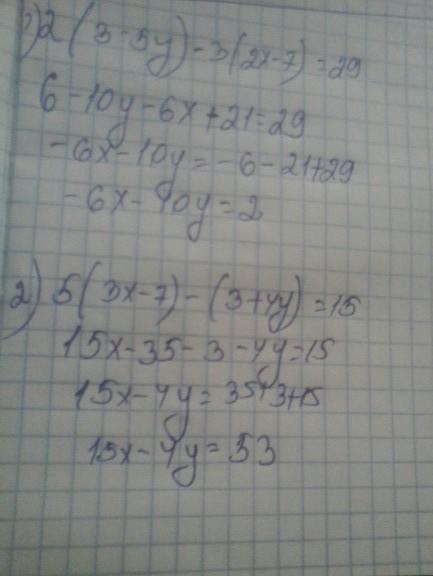 1) 2(3-5y)-3(2x-7)=29
6-10y-6x+21=29
-6x-10y=-6-21+29
-6x-10y=2
2) 5(3x-7)-(3+4y)=15
15x-35-3-4y=15
15x-4y=35+3+15
15x-4y=53